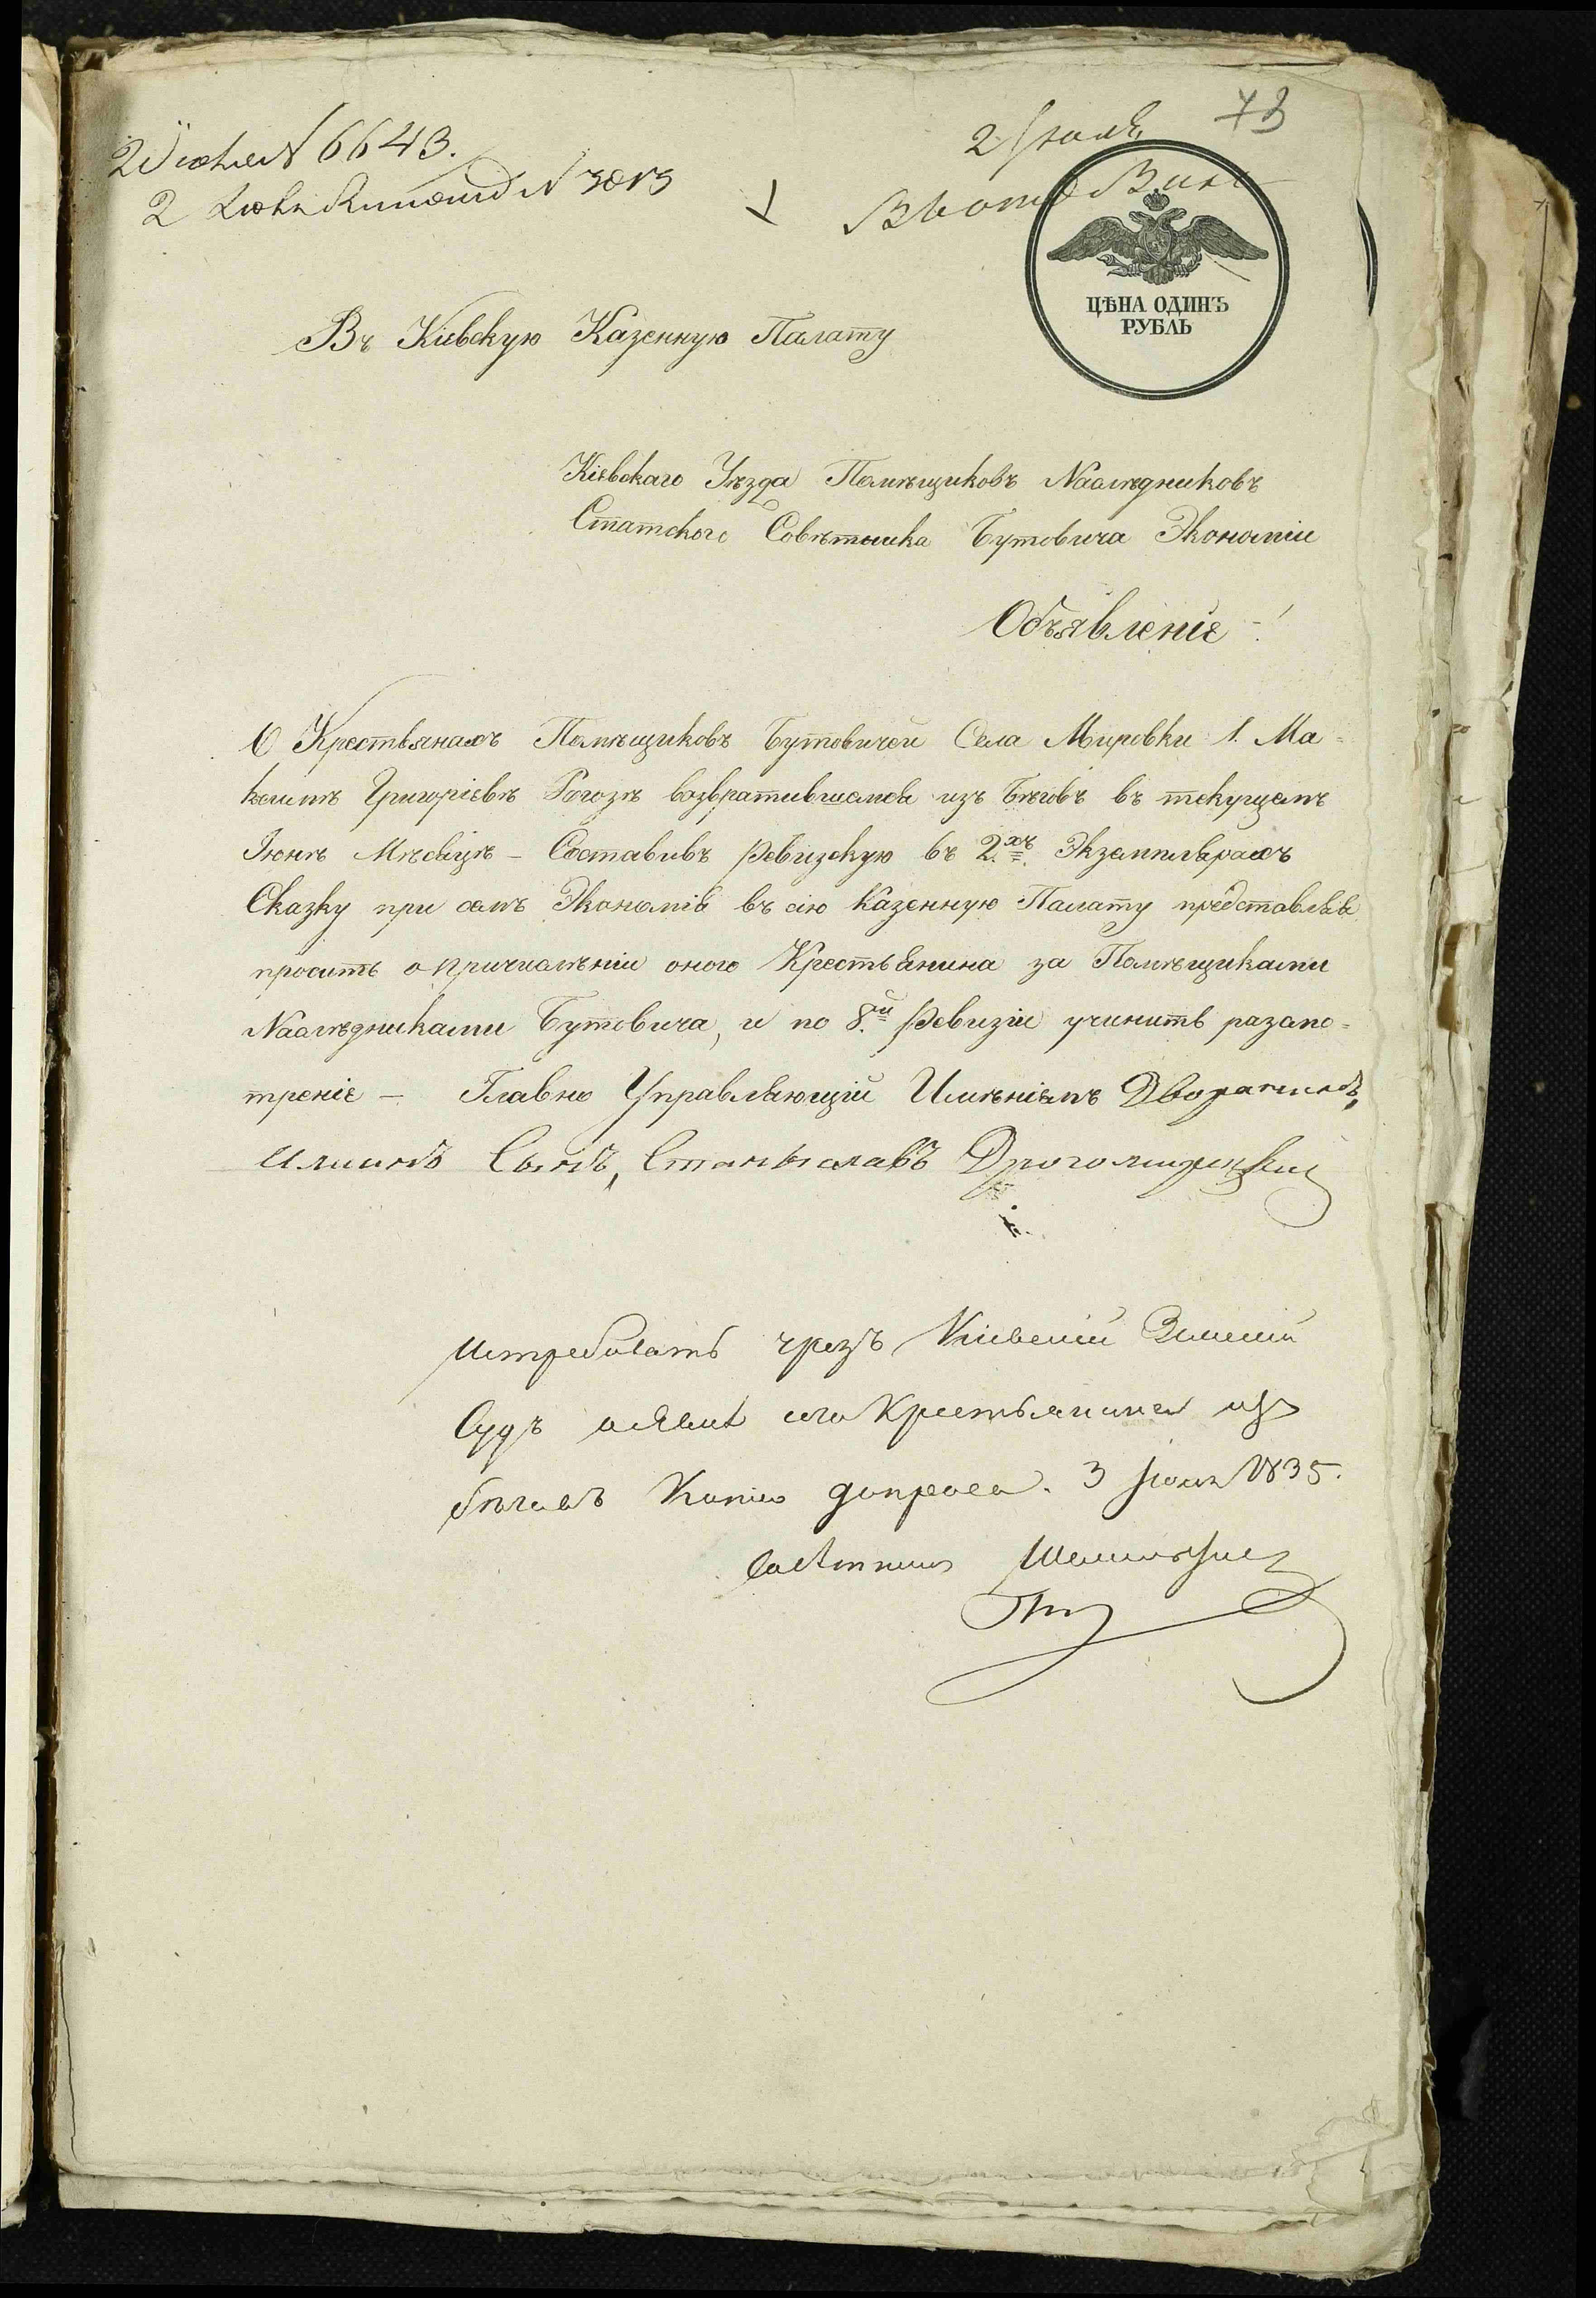 73
2 Іюля № 6643.
2 Іюля № 3813
2 Іюля
ЦѢНА ОДИНЪ
РУБЛЬ
Въ Кіевскую Казенную Палату
Кіевскаго Уѣзда Помѣщиковъ Наслѣдниковъ
Статского Совѣтника Бутовича Экономіи
Объявленіе
О Крестьянахъ Помѣщиковъ Бутовичей Села Мировки 1. Ма=
ксимѣ Григорієвѣ Рогозѣ возвратившемся изъ Бѣговъ въ текущемъ
Іюнѣ Мѣсяцѣ – Составивъ Ревизскую въ 2.хъ Экземплярахъ
Сказку при семъ Экономія въ сію Казенную Палату представляя
проситъ о причисленіи оного Крестьянина за Помѣщиками
Наслѣдниками Бутовича, и по 8.й Ревизіи учинить разсмо=
треніе – Главно Управляющій Имѣніемъ Дворянинъ,
Сынъ, Станиславъ Дрогомирецкій
Истребовать чрезъ Кіевскій Земскій
Судъ сего Крестьянина изъ
бѣговъ Копію допроса. 3 Іюля 1835.
Совѣтникъ